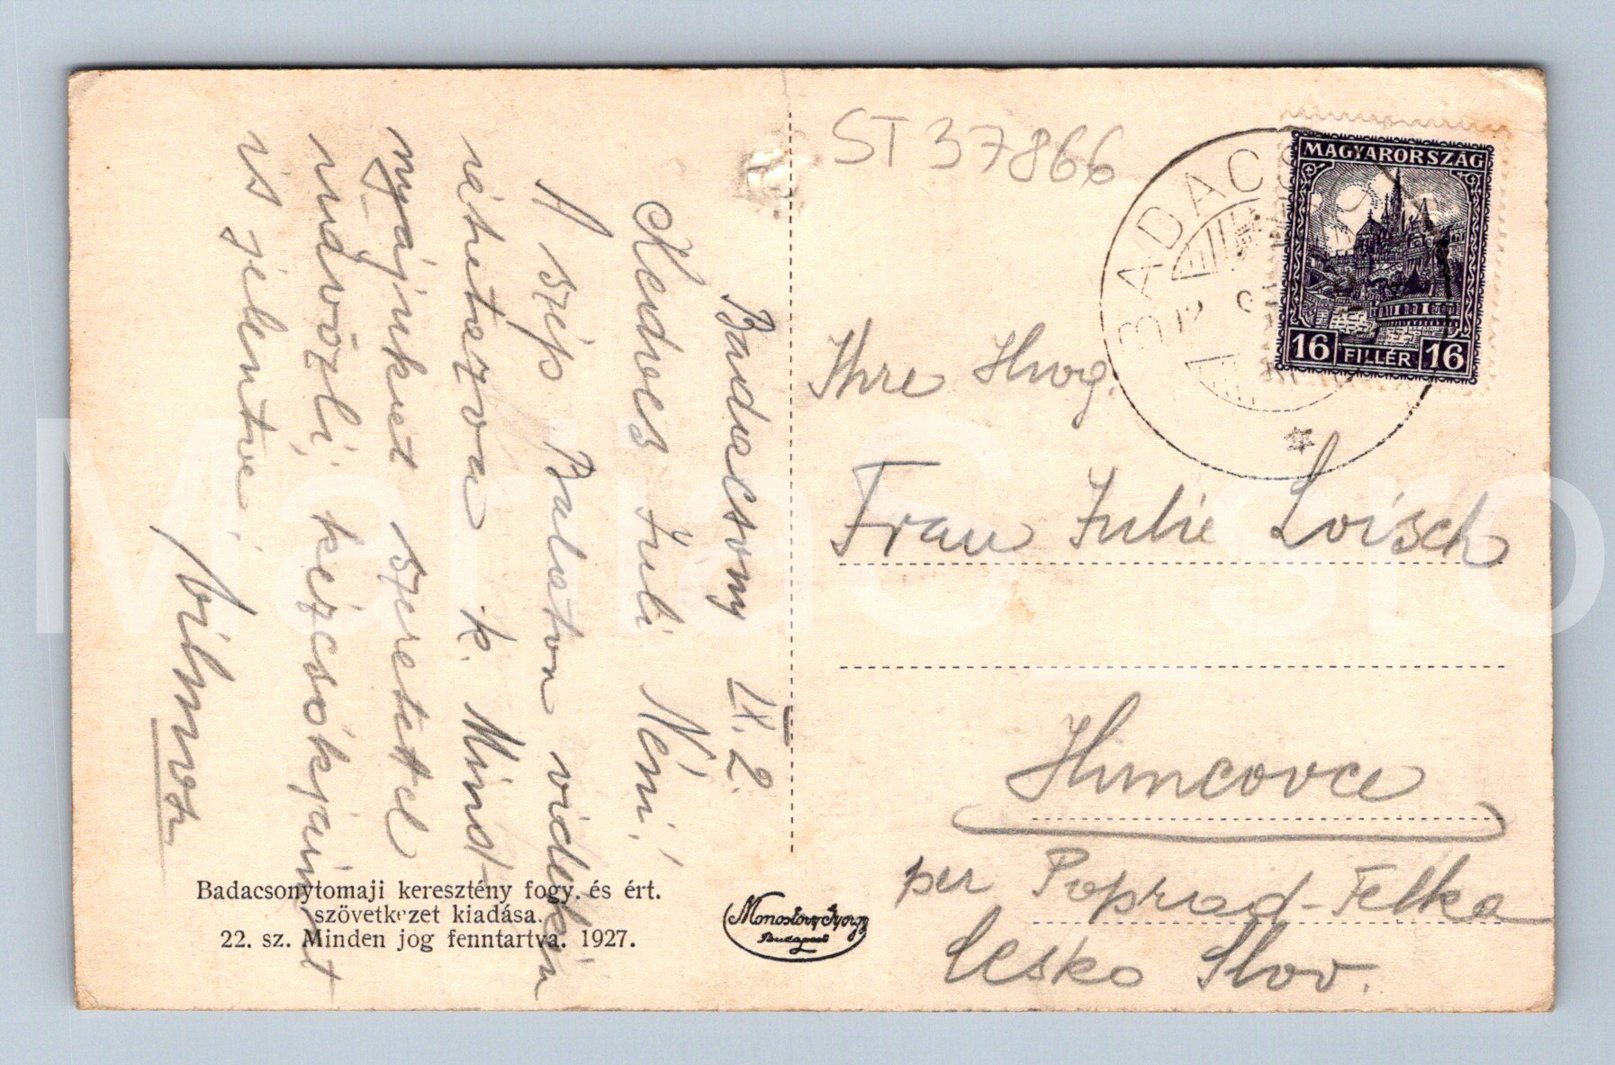 Badacsony IX. 2.
Kedves Juli Néni!
A szép Balaton vidékén
áthutazva k. Mind-
nyájukat szeretettel
üdvözli, kézcsókjaimat
is jelentve:
Vilmos
Badacsonytomaji keresztény fogy. és ért.
szövetkezet kiadása.
22. sz. Minden jog fenntartva. 1927.
Monostory György
Budapest
ST 37866
BADACS
MAGYARORSZÁG
16 FILLÉR 16
Ihre Hwg.
Frau Julie Loisch
Huncovce
per Poprad-Felka
Česko Slov.